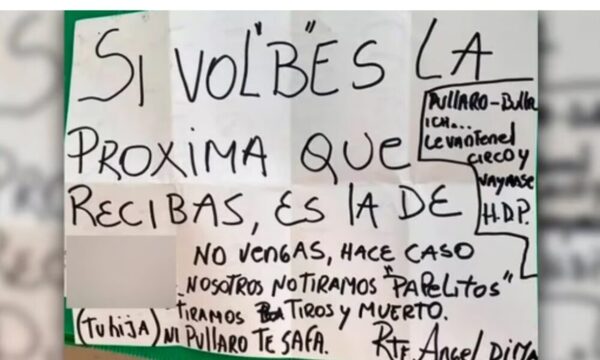 SI VOL"B"ES LA
PROXIMA QUE
RECIBAS, ES LA DE
PULLARO-BULL
ICH...
LEVANTEN EL
CIRCO Y
VAYANSE
H.D.P.
NO VENGAS, HACE CASO
NOSOTROS NO TIRAMOS "PAPELITOS"
TIRAMOS TIROS Y MUERTO.
(TU HIJA) NI PULLARO TE SAFA.
RTE ANGEL DI MA